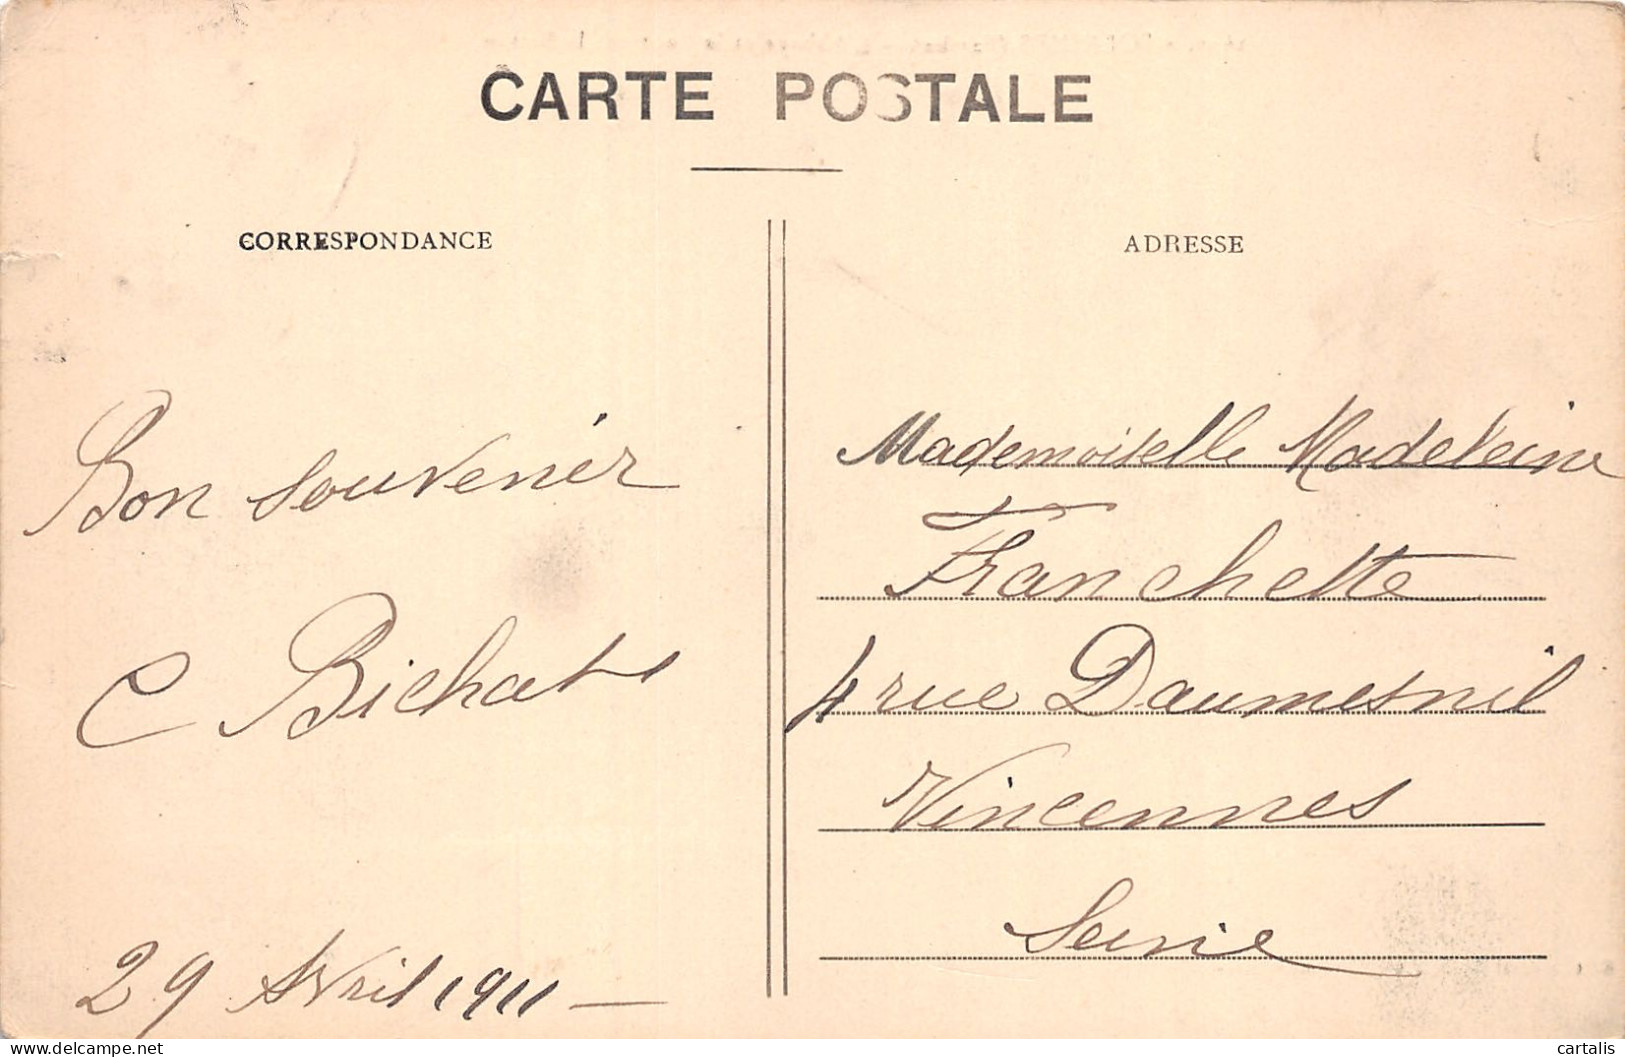 CARTE POSTALE
CORRESPONDANCE
ADRESSE
Bon souvenir
C Bichat
29 Avril 1911
Mademoiselle Madeleine
Franchette
4 rue Daumesnil
Vincennes
Seine
www.delcampe.net
cartalis